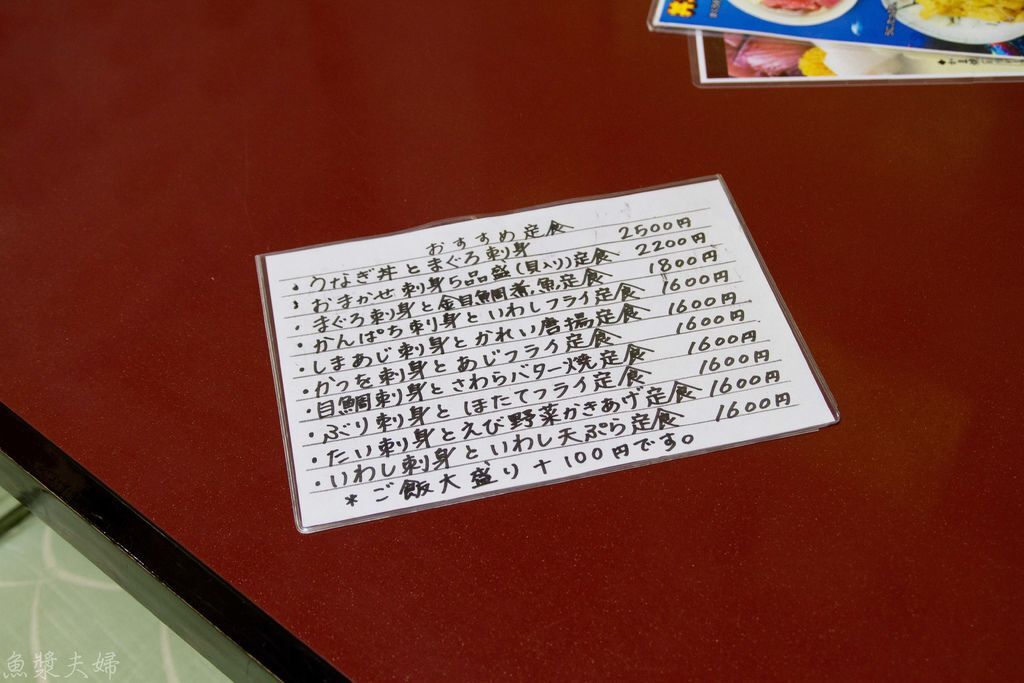 おすすめ定食
・うなぎ丼とまぐろ刺身 2500円
・おまかせ刺身5品盛(貝入り)定食 2200円
・まぐろ刺身と金目鯛煮魚定食 1800円
・かんぱち刺身といわしフライ定食 1600円
・しまあじ刺身とかれい唐揚定食 1600円
・かつを刺身とあじフライ定食 1600円
・目鯛刺身とさわらバター焼定食 1600円
・ぶり刺身とほたてフライ定食 1600円
・たい刺身とえび野菜かきあげ定食 1600円
・いわし刺身といわし天ぷら定食 1600円
*ご飯大盛り+100円です。
魚漿夫婦